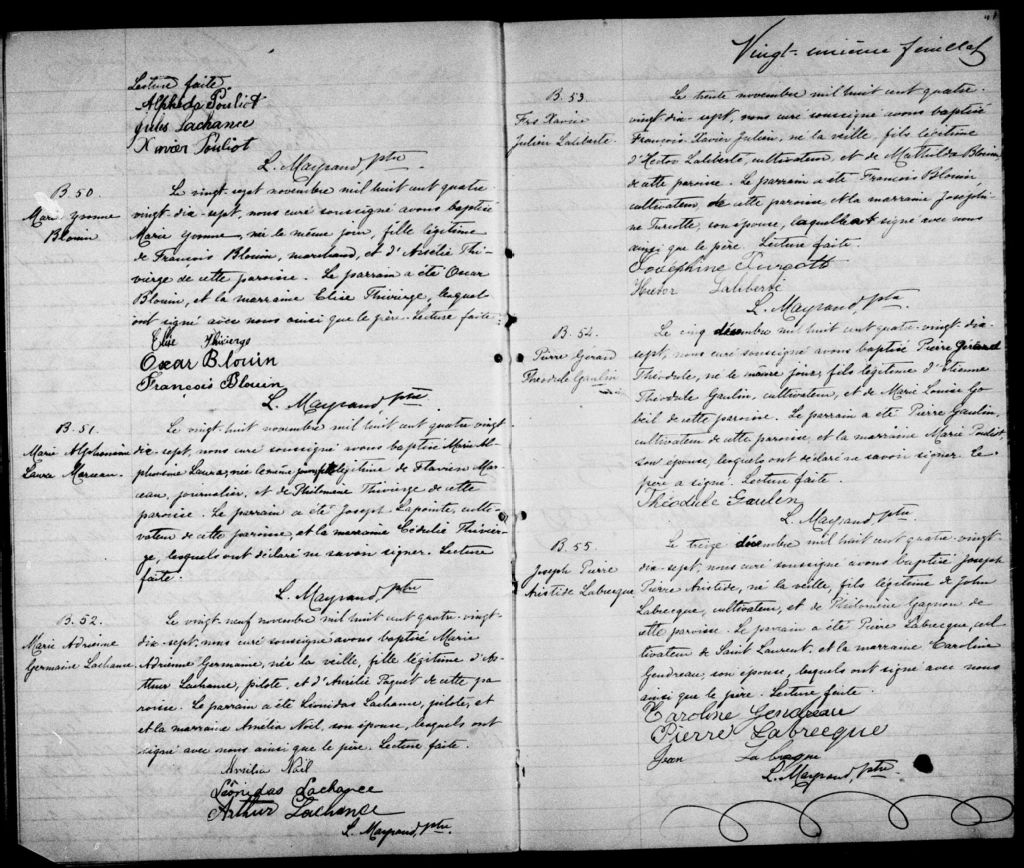 Lecture faite
Alphéda Pouliot
Jules Lachance
Xavier Pouliot
L. Mayrand, ptre
B. 50
Marie Yvonne
Blouin
Le vingt-sept novembre mil huit cent quatre-
vingt-dix-sept, nous curé soussigné avons baptisé
Marie Yvonne, née le même jour, fille légitime
de François Blouin, marchand, et d'Amélie Thi-
vierge de cette paroisse. Le parrain a été Oscar
Blouin, et la marraine Elise Thivierge, lesquels
ont signé avec nous ainsi que le père. Lecture faite.
Elise Thivierge
Oscar Blouin
François Blouin
L. Mayrand, ptre
B. 51.
Marie Alphonsine
Laura Moreau.
Le vingt-huit novembre mil huit cent quatre-vingt
dix-sept, nous curé soussigné avons baptisé Marie Al-
phonsine Laura, née le même jour, fille légitime de Flavien Mo-
reau, journalier, et de Philomène Thivierge de cette
paroisse. Le parrain a été Joseph Lapointe, culti-
vateur de cette paroisse, et la marraine Cédulie Thivier-
ge, lesquels ont déclaré ne savoir signer. Lecture
faite.
L. Mayrand, ptre
B. 52.
Marie Adrienne
Germaine Lachance
Le vingt-neuf novembre mil huit cent quatre-vingt-
dix-sept, nous curé soussigné avons baptisé Marie
Adrienne Germaine, née la veille, fille légitime d'Ar-
thur Lachance, pilote, et d'Aurélie Paquet de cette pa
roisse. Le parrain a été Léonidas Lachance, pilote, et
et la marraine Amélia Noël, son épouse, lesquels ont
signé avec nous ainsi que le père. Lecture faite.
Amélia Noël
Léonidas Lachance
Arthur Lachance
L. Mayrand, ptre.
41
Vingt-unième feuillet
B. 53.
Frs Xavier
Julien Laliberté
Le trente novembre mil huit cent quatre-
vingt-dix-sept, nous curé soussigné avons baptisé
François Xavier Julien, né la veille, fils légitime
d'Hector Laliberté, cultivateur, et de Mathilda Blouin,
de cette paroisse. Le parrain a été François Blouin
cultivateur de cette paroisse et la marraine Joséphi-
ne Turcotte, son épouse, laquelle a signé avec nous
ainsi que le père. Lecture faite.
Joséphine Turcott
Hector Laliberté
L. Mayrand, ptre
B. 54.
Pierre Gérard
Théodule Gaulin
Le cinq décembre mil huit cent quatre-vingt-dix-
sept, nous curé soussigné avons baptisé Pierre Gérard
Théodule, né le même jour, fils légitime d'Etienne
Théodule Gaulin, cultivateur, et de Marie Louise Go-
beil de cette paroisse. Le parrain a été Pierre Gaulin,
cultivateur de cette paroisse, et la marraine Marie Pouliot,
son épouse, lesquels ont déclaré ne savoir signer. Le
père a signé. Lecture faite.
Théodule Gaulin
L. Mayrand, ptre.
B. 55
Joseph Pierre
Aristide Labrecque
Le treize décembre mil huit cent quatre-vingt-
dix-sept, nous curé soussigné avons baptisé Joseph
Pierre Aristide, né la veille, fils légitime de John
Labrecque, cultivateur, et de Philomène Gagnon de
cette paroisse. Le parrain a été Pierre Labrecque, cul
tivateur de Saint Laurent, et la marraine Caroline
Gendreau, son épouse, lesquels ont signé avec nous
ainsi que le père. Lecture faite.
Caroline Gendreau
Pierre Labrecque
Jean Labrecque
L. Mayrand, ptre